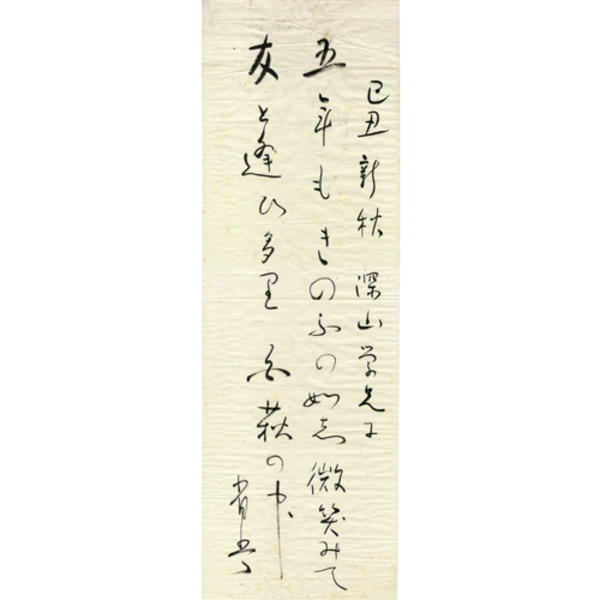 己丑 新秋 深山学兄に
五年もきのふの如志 微笑みて
友と逢ひ多里 白萩の中